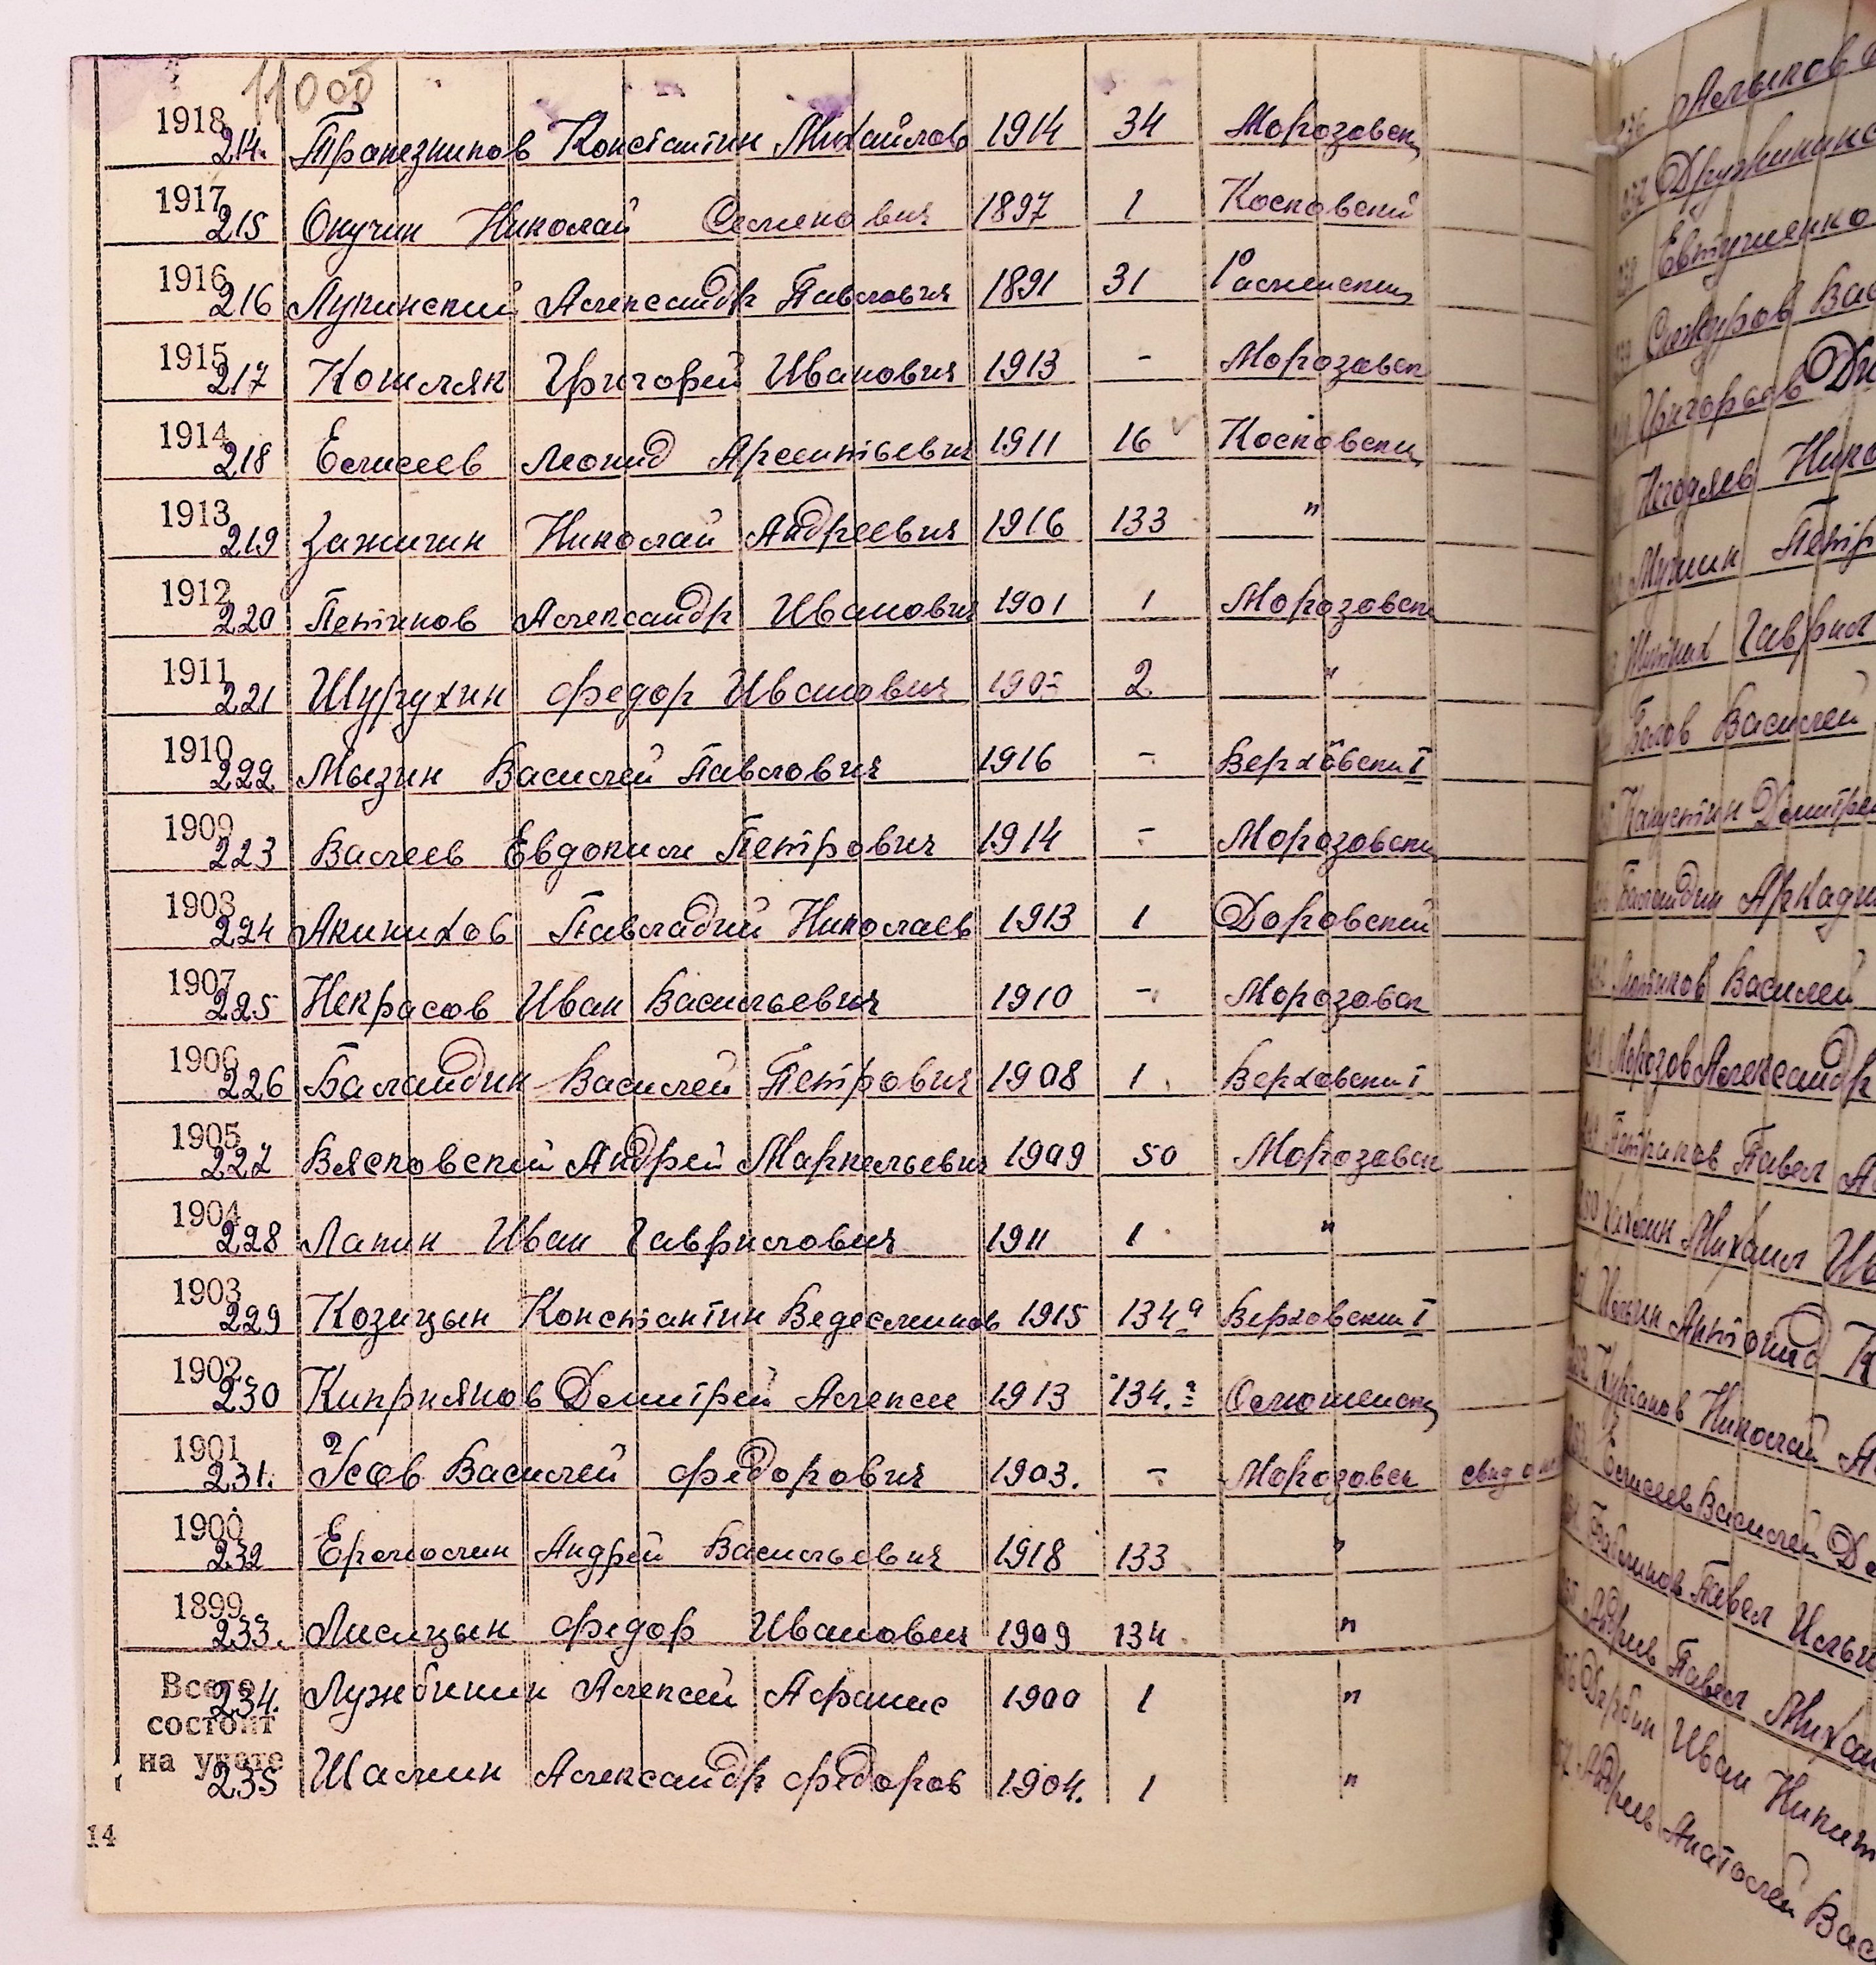 11000
1918 214. Трапезников Константин Михайлов 1914 34 Морозовск
1917 215 Онучин Николай Семенович 1897 1 Косковский
1916 216 Лупинский Александр Павлович 1891 31
1915 217 Кошляк Григорий Иванович 1913 - Морозовск
1914 218 Елисеев Леонид Арсентьевич 1911 16 Косковски
1913 219 Зажигин Николай Андреевич 1916 133 "
1912 220 Петчков Александр Иванович 1901 1 Морозовск
1911 221 Шурухин Федор Иванович 2 "
1910 222 Мызин Василей Павлович 1916 - Верховски I
1909 223 Валеев Евдоким Петрович 1914 - Морозовски
1908 224 Акинихов Павладий Николаев 1913 1 Доровский
1907 225 Некрасов Иван Васильевич 1910 - Морозовск
1906 226 Баландин Василей Петрович 1908 1 Верховски I
1905 227 Вясковский Андрей Маркельевич 1909 50 Морозовск
1904 228 Лапин Иван Гаврилович 1911 1 "
1903 229 Козицын Константин 1915 134а Верховски I
1902 230 Киприянов Дмитрей Алексее 1913 134.а
1901 231. Усов Василей Федорович 1903. - Морозовск
1900 232 Ермолин Андрей Васильевич 1918 133 "
1899 233. Лисицын Федор Иванович 1909 134 "
Всего состоит на учете
234. Лужбинин Алексей Афанис 1900 1 "
235 Шалин Александр Федоров 1904. 1 "
14
Дружинин
Евтушенко
Григорьев
Мушин Петр
Гаврил
Белов Василей
Капустин Дмитрей
Баландин Аркади
Василей
Морозов Александр
Петраков Павел
Михаил
Ильин Антонид
Курганов Николай
Елисеев Василей
Павел Ильи
Павел Михаи
Дербин Иван Никит
Анатолей Вас